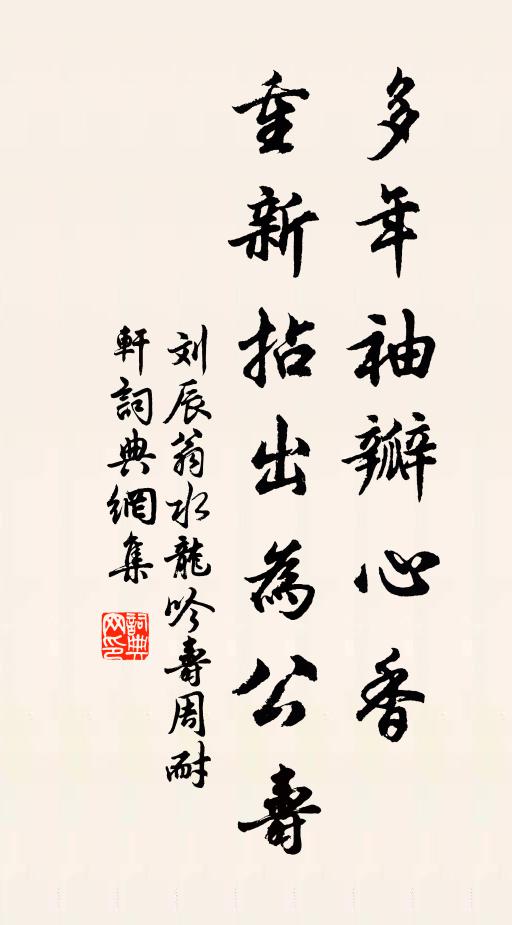 多年袖瓣心香
重新拈出為公壽
刘辰翁水龍吟壽周耐
軒詞典網集
詞典
网印